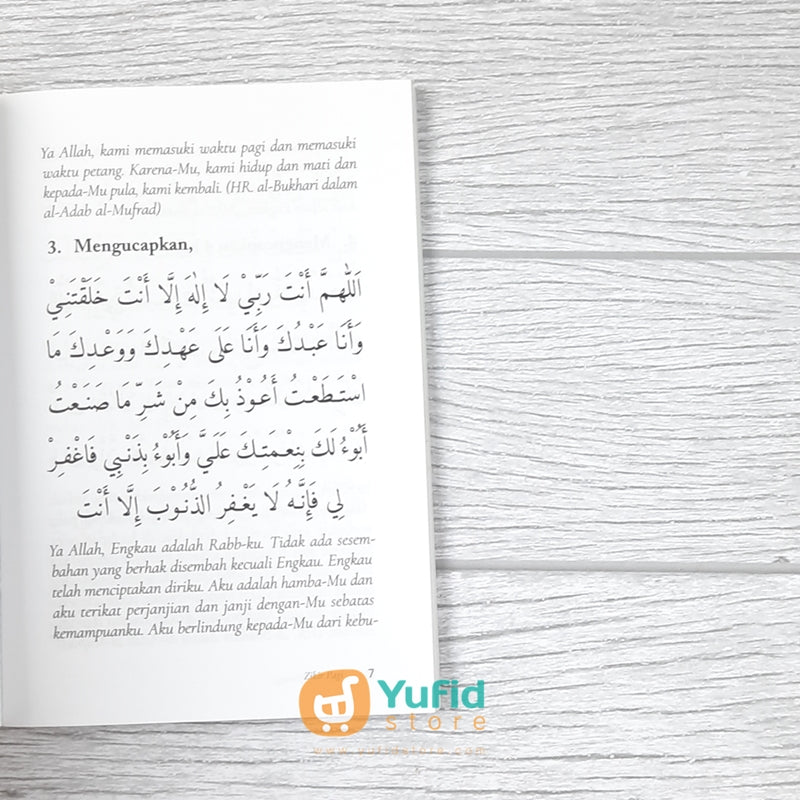 Ya Allah, kami memasuki waktu pagi dan memasuki
waktu petang. Karena-Mu, kami hidup dan mati dan
kepada-Mu pula, kami kembali. (HR. al-Bukhari dalam
al-Adab al-Mufrad)
3. Mengucapkan,
اَللّٰهمَّ أَنْتَ رَبِّيْ لَا إِلٰهَ إِلَّا أَنْتَ خَلَقْتَنِيْ
وَأَنَا عَبْدُكَ وَأَنَا عَلَى عَهْدِكَ وَوَعْدِكَ مَا
اسْتَطَعْتُ أَعُوْذُ بِكَ مِنْ شَرِّ مَا صَنَعْتُ
أَبُوْءُ لَكَ بِنِعْمَتِكَ عَلَيَّ وَأَبُوْءُ بِذَنْبِي فَاغْفِرْ
لِي فَإِنَّهُ لَا يَغْفِرُ الذُّنُوْبَ إِلَّا أَنْتَ
Ya Allah, Engkau adalah Rabb-ku. Tidak ada sesem-
bahan yang berhak disembah kecuali Engkau. Engkau
telah menciptakan diriku. Aku adalah hamba-Mu dan
aku terikat perjanjian dan janji dengan-Mu sebatas
kemampuanku. Aku berlindung kepada-Mu dari kebu-
7
Yufid
store
www.yufidstore.com